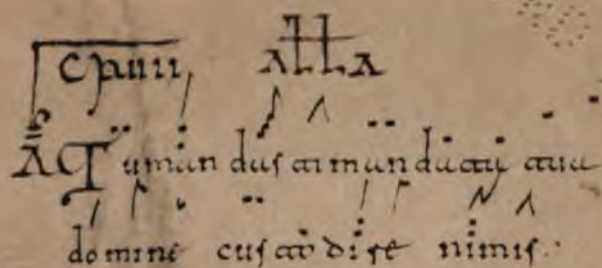 ALLA
Tu man das ti man data tua
domine custo dire nimis.